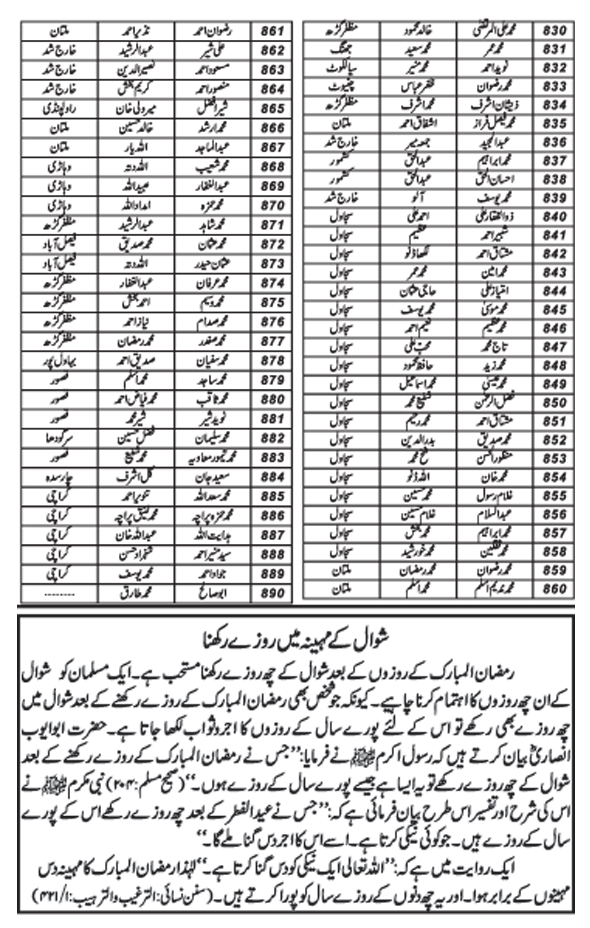 830 محمد علی المرتضیٰ خالد محمود مظفر گڑھ
831 محمد عمر محمد سعید جھنگ
832 نوید احمد محمد منیر سیالکوٹ
833 محمد رضوان ظفر عباس چنیوٹ
834 ذیشان اشرف محمد اشرف مظفر گڑھ
835 محمد فیصل فراز اشفاق احمد ملتان
836 عبدالمجید جمعہ میر خارج شد
837 محمد ابراہیم عبدالحق کشمور
838 احسان الحق عبدالحق کشمور
839 محمد یوسف آلو خارج شد
840 ذوالفقار علی احمد علی سجاول
841 شبیر احمد عظیم سجاول
842 مشتاق احمد لکھاڈنو سجاول
843 محمد امین محمد عمر سجاول
844 امتیاز علی حاجی عثمان سجاول
845 محمد موسیٰ محمد یوسف سجاول
846 محمد عظیم نعیم احمد سجاول
847 تاج محمد محب علی سجاول
848 محمد زید حافظ محمود سجاول
849 محمد عیسیٰ محمد اسماعیل سجاول
850 فضل الرحمٰن شفیع محمد سجاول
851 مشتاق احمد محمد رحیم سجاول
852 محمد صدیق بدرالدین سجاول
853 منظور الحسن فتح محمد سجاول
854 محمد خان اللہ ڈنو سجاول
855 غلام رسول محمد حسین سجاول
856 عبدالسلام غلام حسین سجاول
857 محمد ابراہیم محمد بخش سجاول
858 محمد ثقلین محمد خورشید سجاول
859 محمد رضوان محمد رمضان ملتان
860 محمد ندیم اسلم محمد اسلم ملتان
861 رضوان احمد نذیر احمد ملتان
862 علی شیر عبدالرشید خارج شد
863 مسعود احمد نصیر الدین خارج شد
864 منصور احمد کریم بخش خارج شد
865 شیر افضل میر ولی خان راولپنڈی
866 محمد ارشد خالد حسین ملتان
867 عبدالماجد اللہ یار ملتان
868 محمد شعیب اللہ دتہ وہاڑی
869 عبدالغفار عبید اللہ وہاڑی
870 محمد حمزہ امداد اللہ وہاڑی
871 محمد شاہد عبدالرشید مظفر گڑھ
872 محمد عثمان محمد صدیق فیصل آباد
873 عثمان حیدر اللہ دتہ فیصل آباد
874 محمد عرفان عبدالغفار مظفر گڑھ
875 محمد وسیم احمد بخش مظفر گڑھ
876 محمد صدام نیاز احمد مظفر گڑھ
877 محمد صفدر محمد رمضان مظفر گڑھ
878 محمد سفیان صدیق احمد بہاول پور
879 محمد ساجد محمد اسلم قصور
880 محمد ثاقب محمد فیاض احمد قصور
881 نوید شیر شیر محمد قصور
882 محمد سلیمان فضل حسین سرگودھا
883 محمد تیمور معاویہ محمد شفیع قصور
884 سعید جان گل اشرف چارسدہ
885 محمد سعد اللہ تنویر احمد کراچی
886 محمد حمزہ پراچہ محمد لئیق پراچہ کراچی
887 ہدایت اللہ عبداللہ خان کراچی
888 سید منیر احمد شہزاد حسن کراچی
889 جواد احمد محمد یوسف کراچی
890 ابو صالح محمد طارق --------
شوال کے مہینہ میں روزے رکھنا
رمضان المبارک کے روزوں کے بعد شوال کے چھ روزے رکھنا مستحب ہے۔ ایک مسلمان کو شوال
کے ان چھ روزوں کا اہتمام کرنا چاہیے۔ کیونکہ جو شخص بھی رمضان المبارک کے روزے رکھنے کے بعد شوال میں
چھ روزے بھی رکھے تو اس کے لئے پورے سال کے روزوں کا اجر و ثواب لکھا جاتا ہے۔ حضرت ابو ایوب
انصاریؓ بیان کرتے ہیں کہ رسول اکرم ﷺ نے فرمایا: ’’جس نے رمضان المبارک کے روزے رکھنے کے بعد
شوال کے چھ روزے رکھے تو یہ ایسا ہے جیسے پورے سال کے روزے ہوں۔‘‘ (صحیح مسلم: ۲۰۴) نبی مکرم ﷺ نے
اس کی شرح اور تفسیر اس طرح بیان فرمائی ہے کہ: ’’جس نے عید الفطر کے بعد چھ روزے رکھے اس کے پورے
سال کے روزے ہیں۔ جو کوئی نیکی کرتا ہے۔ اسے اس کا اجر دس گنا ملے گا۔‘‘
ایک روایت میں ہے کہ: ’’اللہ تعالیٰ ایک نیکی کو دس گنا کرتا ہے۔‘‘ لہٰذا رمضان المبارک کا مہینہ دس
مہینوں کے برابر ہوا۔ اور یہ چھ دنوں کے روزے سال کو پورا کرتے ہیں۔ (سنن نسائی: الترغیب والترہیب: ۱/ ۴۲۱)